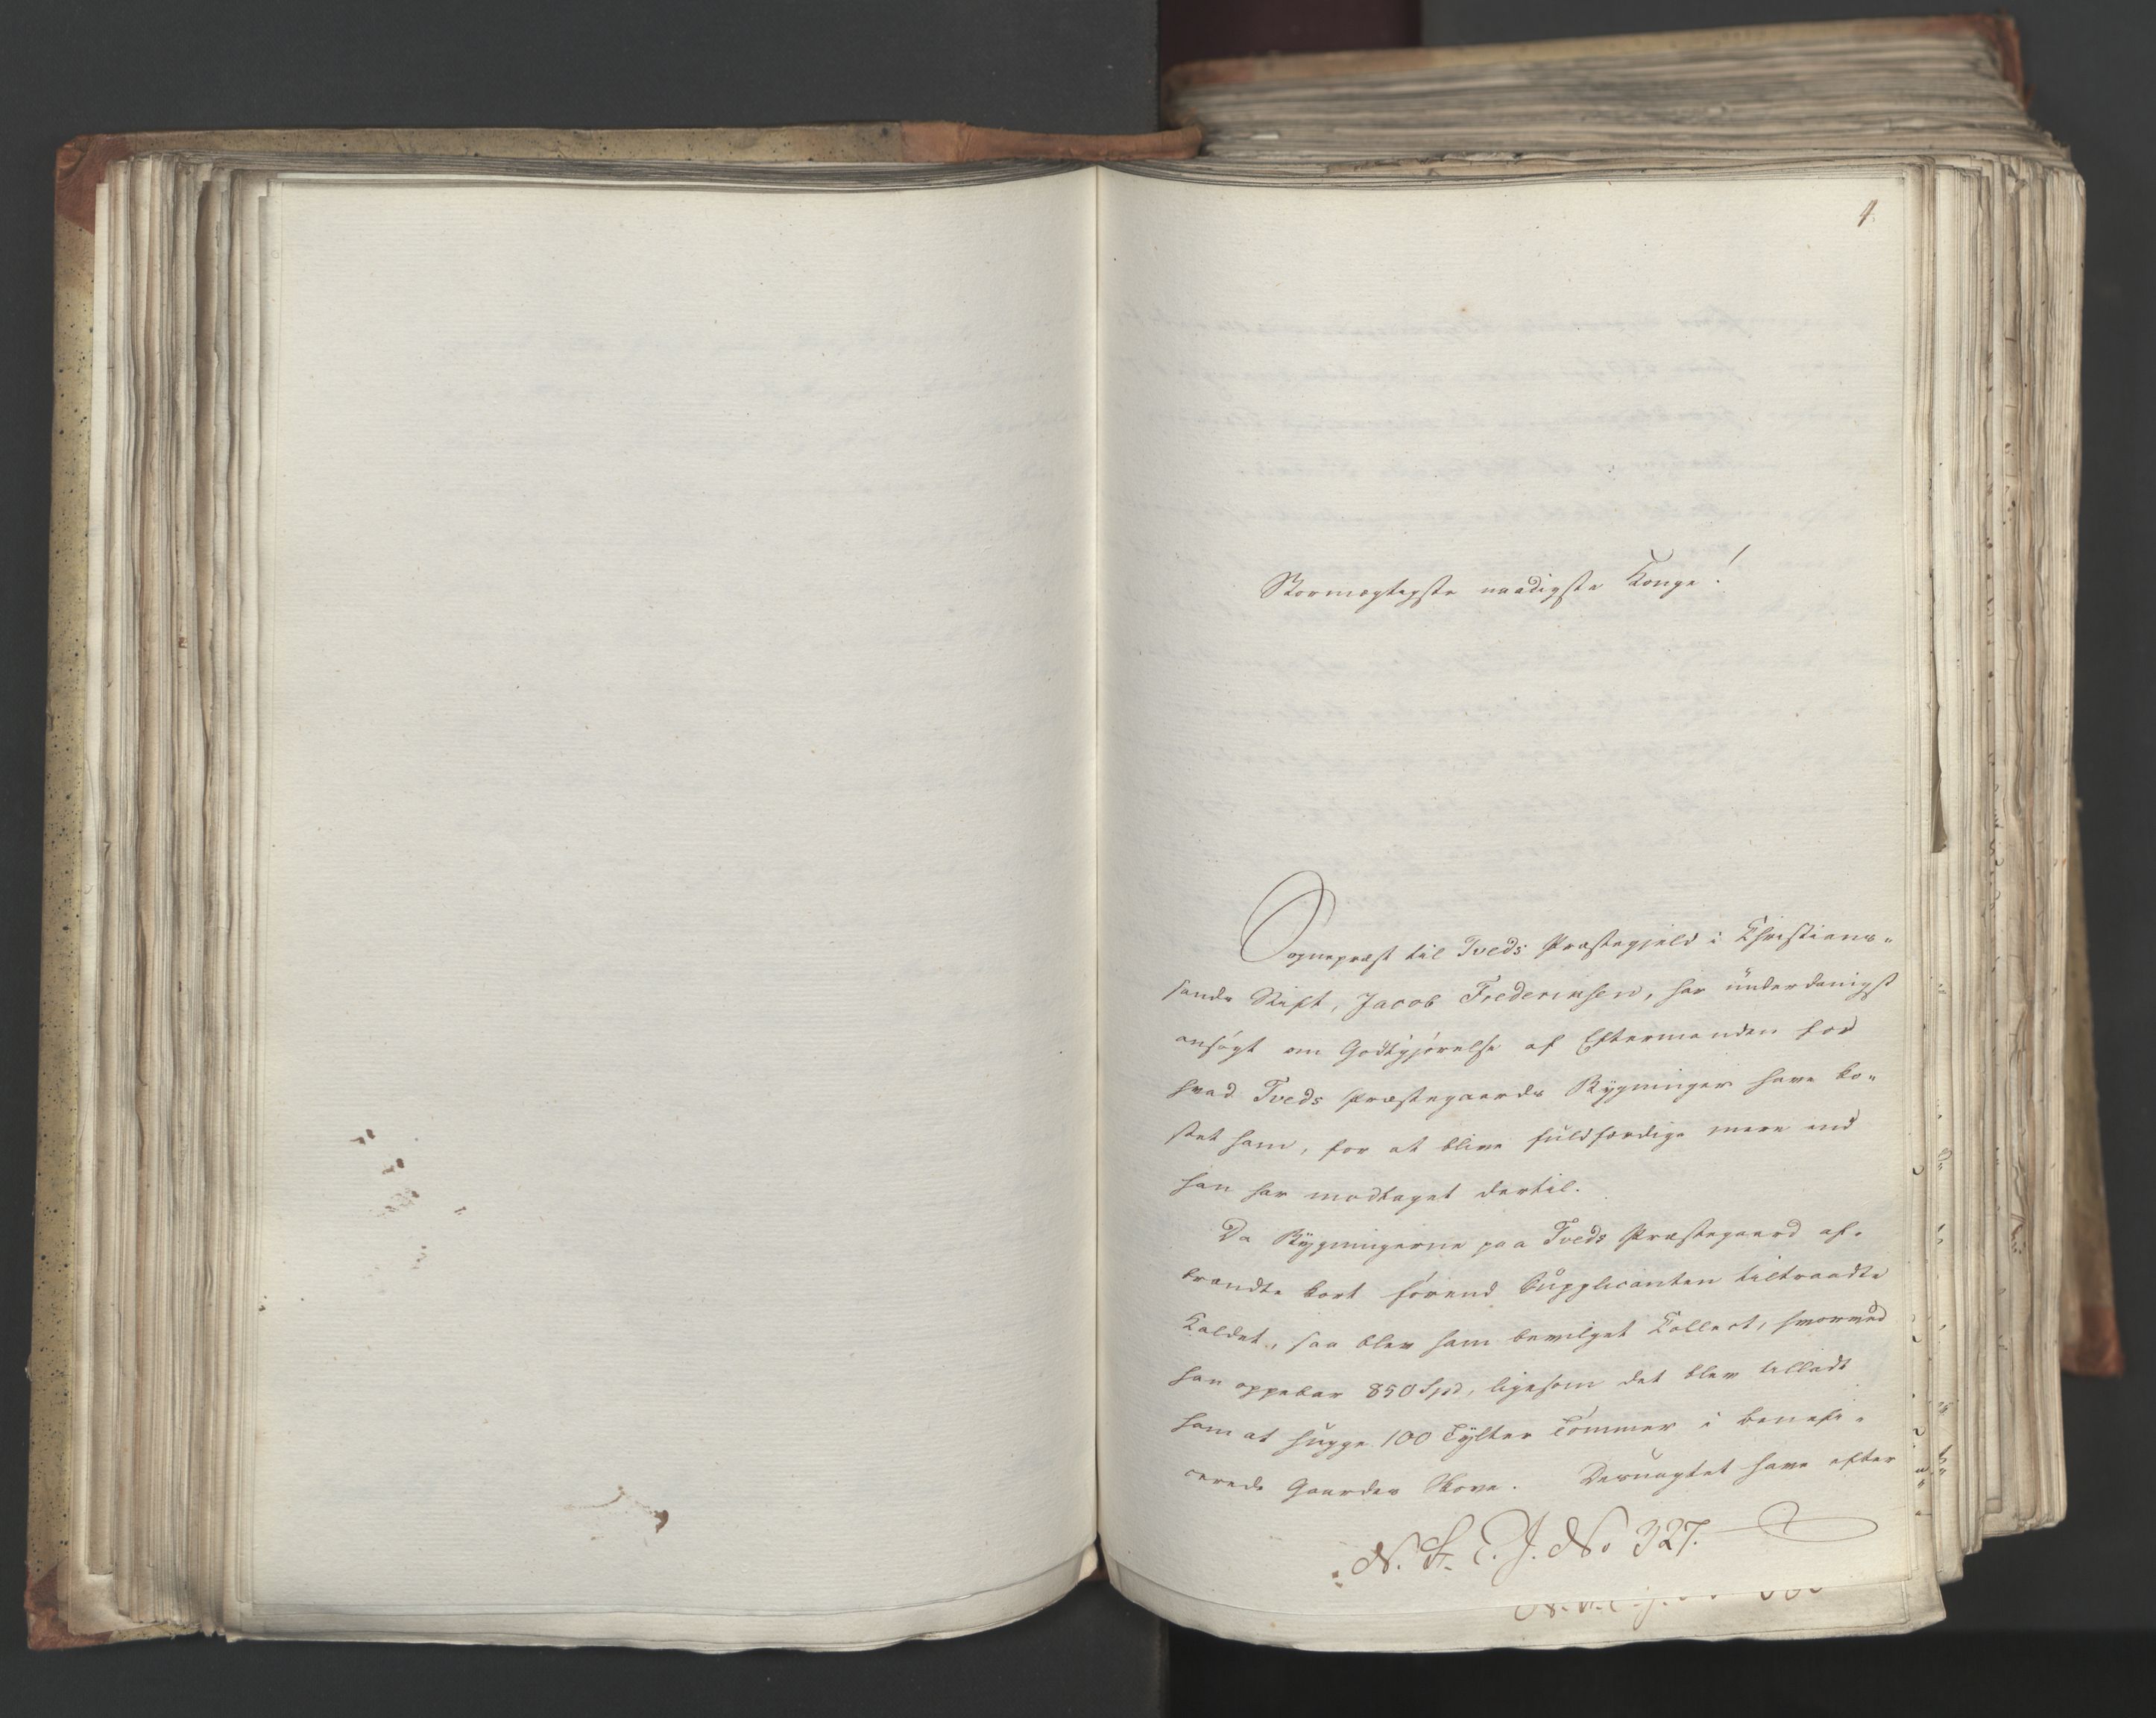 4.
Stormægtigste naadigste Konge!
Sognepræst til Tveds Præstegjeld i Christians-
sands Stift, Jacob Frederiksen, har underdanigst
ansøgt om Godtgjørelse af Eftermanden for
hvad Tveds Præstegaards Bygninger have ko-
stet ham, for at blive fuldfærdige mere end
han har modtaget dertil.
Da Bygningerne paa Tveds Præstegaard af-
brændte kort førend Supplicanten tiltraadte
Kaldet, saa blev ham bevilget Collect, hvorved
han oppebar 850 Spd, ligesom det blev tilladt
ham at hugge 100 Tylter Tømmer i benefi-
cerede Gaardes Skove. Desuagtet have efter
N. St. E. J. No 327.